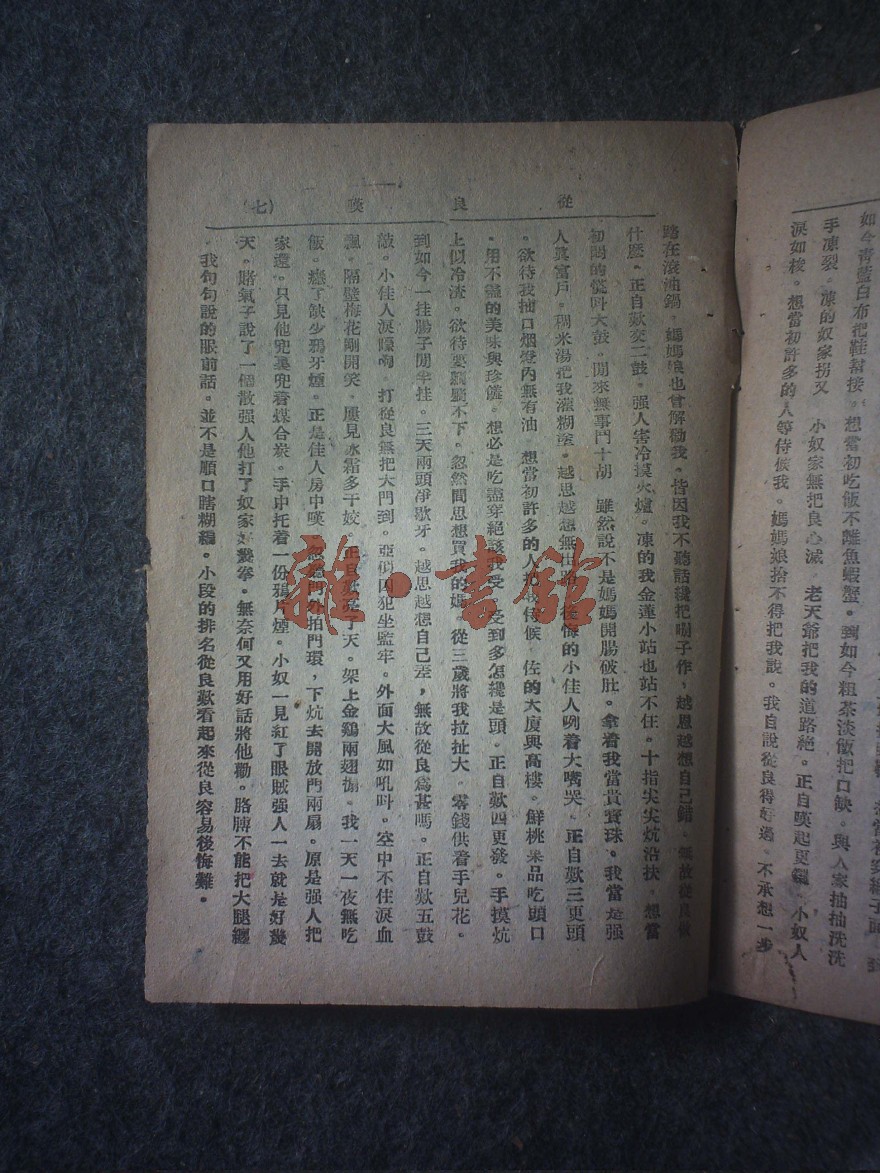 如今青藍白布把鞋幫接。想當初吃飯不離魚蝦蟹。到如今粗茶淡飯把口缺。與人家抽抽洗洗
手凍裂。凍的奴家拐又 小奴家無把良心滅。老天爺把我的道路絕。正自嘆起更鑼。小奴人
淚如梭。想當初許多的人等侍候我。媽媽娘捨不得把我說。我自說從良得好過。不承想一步
從良嘆 (七)
路在滾油鍋。媽媽娘也曾解勸我。皆因我不聽話纔把喝子作。越思越想自己錯。無故從良做
什麽。正自歎交二鼓。强人害冷摸火爐。凍的我金蓮小站也站不住。十指尖尖炕沿扶。想當
初喝的慌叫大鼓。閒來無事鬥十胡 雖然說不是媽媽開腸破肚。拿着我當貴寳珠。我當是强
人眞富戶。稠米湯把我灌糊塗。越思越想無出路。後悔的小佳人咧着大嘴哭。正自歎三更頭
。欲待我抽口烟燈內無有油。想當初許多的人把我侍候。佐的大廈與高樓。鮮桃果品吃頭口
。用不盡的美味與珍饈。想必是吃盡穿絕該我受。受到多怎纔是頭。正自歎四更發。手摸炕
上似冷渣。欲待要 不下。忽然間思想買我的媽。從三歲將我拉扯大。零錢供着手兒花。
到如今一挂腸子閒半挂。三天兩頭凈歇牙。越思越想自己歪，無故從良爲甚嗎。正自歎五鼓
敲。小佳人淚嚎啕。打從良無把大門到。亞似囚犯坐監牢。外面大風如吼叫。空中不住淚血
飄。隔壁梅花剛開笑。屢見冰霜多干姣。正自歎亮了天。架上金鷄兩翅搧。我一天一夜無吃
飯。癮了缺少鴉牙煙。正是佳人房中嘆。忽聽門外拍門環，下炕去開放門兩扇。原是强人把
家還。只見他兜裏兜着煤合炭。手中托着一份鴉片煙。小奴一見紅了眼賊强人一去就是好幾
天。賭氣子說了一個散强人他打了奴家好幾拳。無奈何又用好話將他勸。胳膊不能把大腿纏
。我句句說的眼前話。並不是順口瞎糊編。小段的排名從良歎看起來從良容易後悔難。
雜·書館